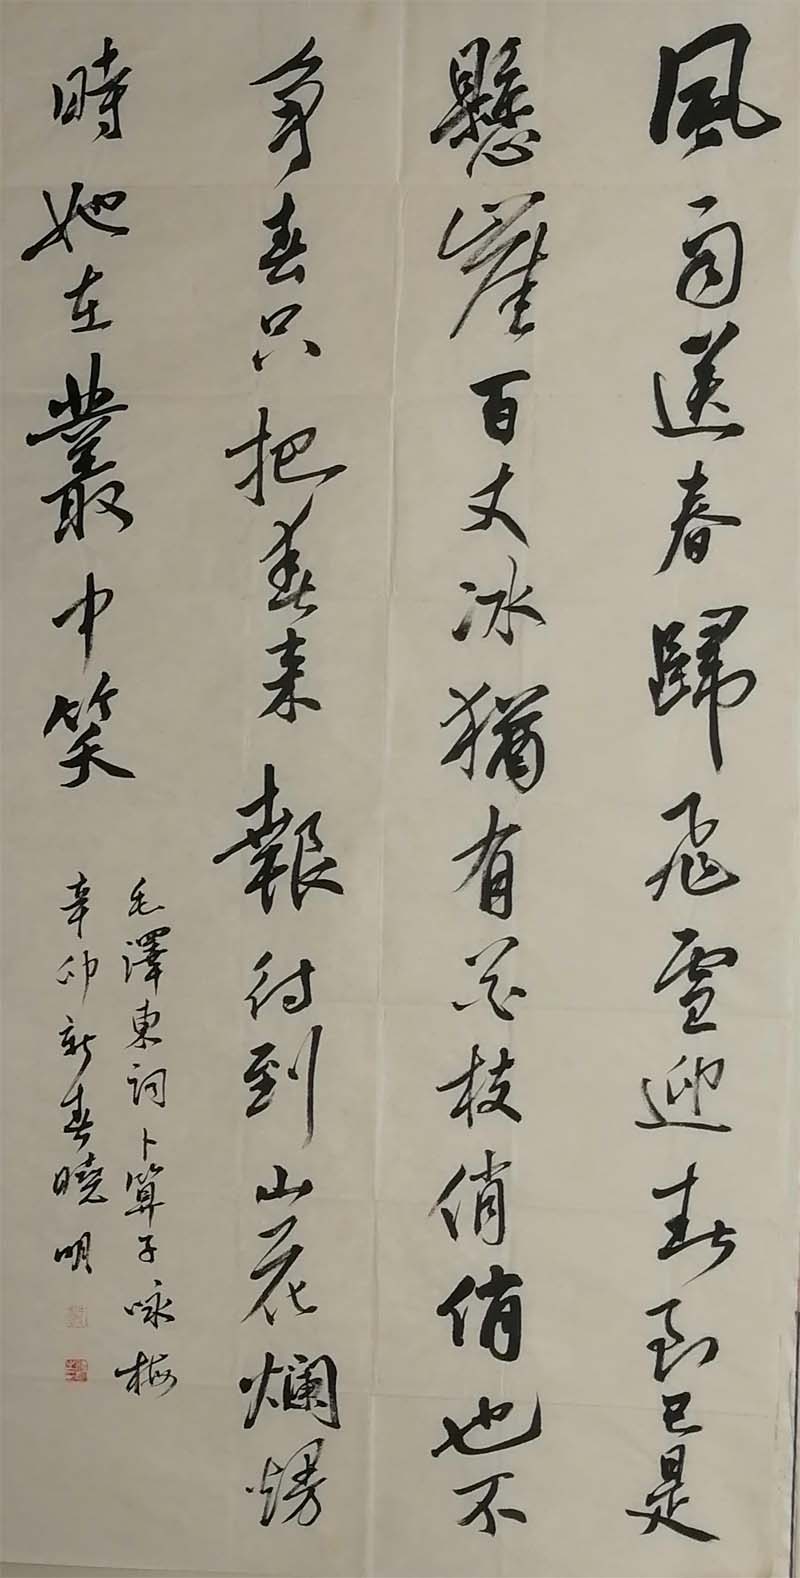 風雨送春歸飛雪迎春到已是
懸崖百丈冰猶有花枝俏俏也不
争春只把春来報待到山花爛熳
時她在叢中笑
毛澤東詞卜算子咏梅
辛卯新春曉明